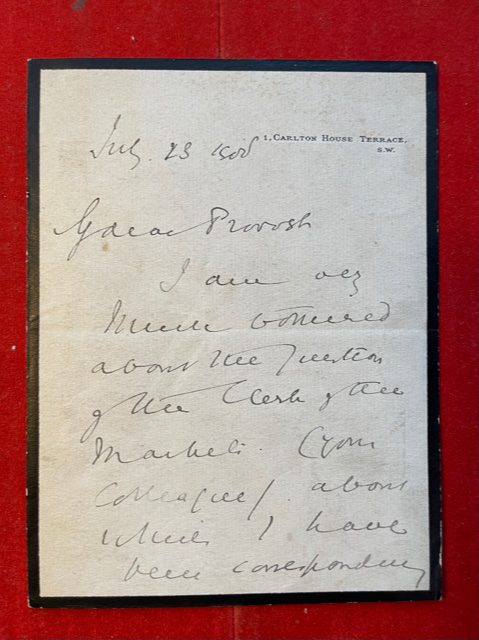 1, CARLTON HOUSE TERRACE,
S.W.
July. 23 1908
My dear Provost
I am very
much bothered
about the question
of the Clerk of the
Markets. (your
Colleague). about
which I have
been corresponding